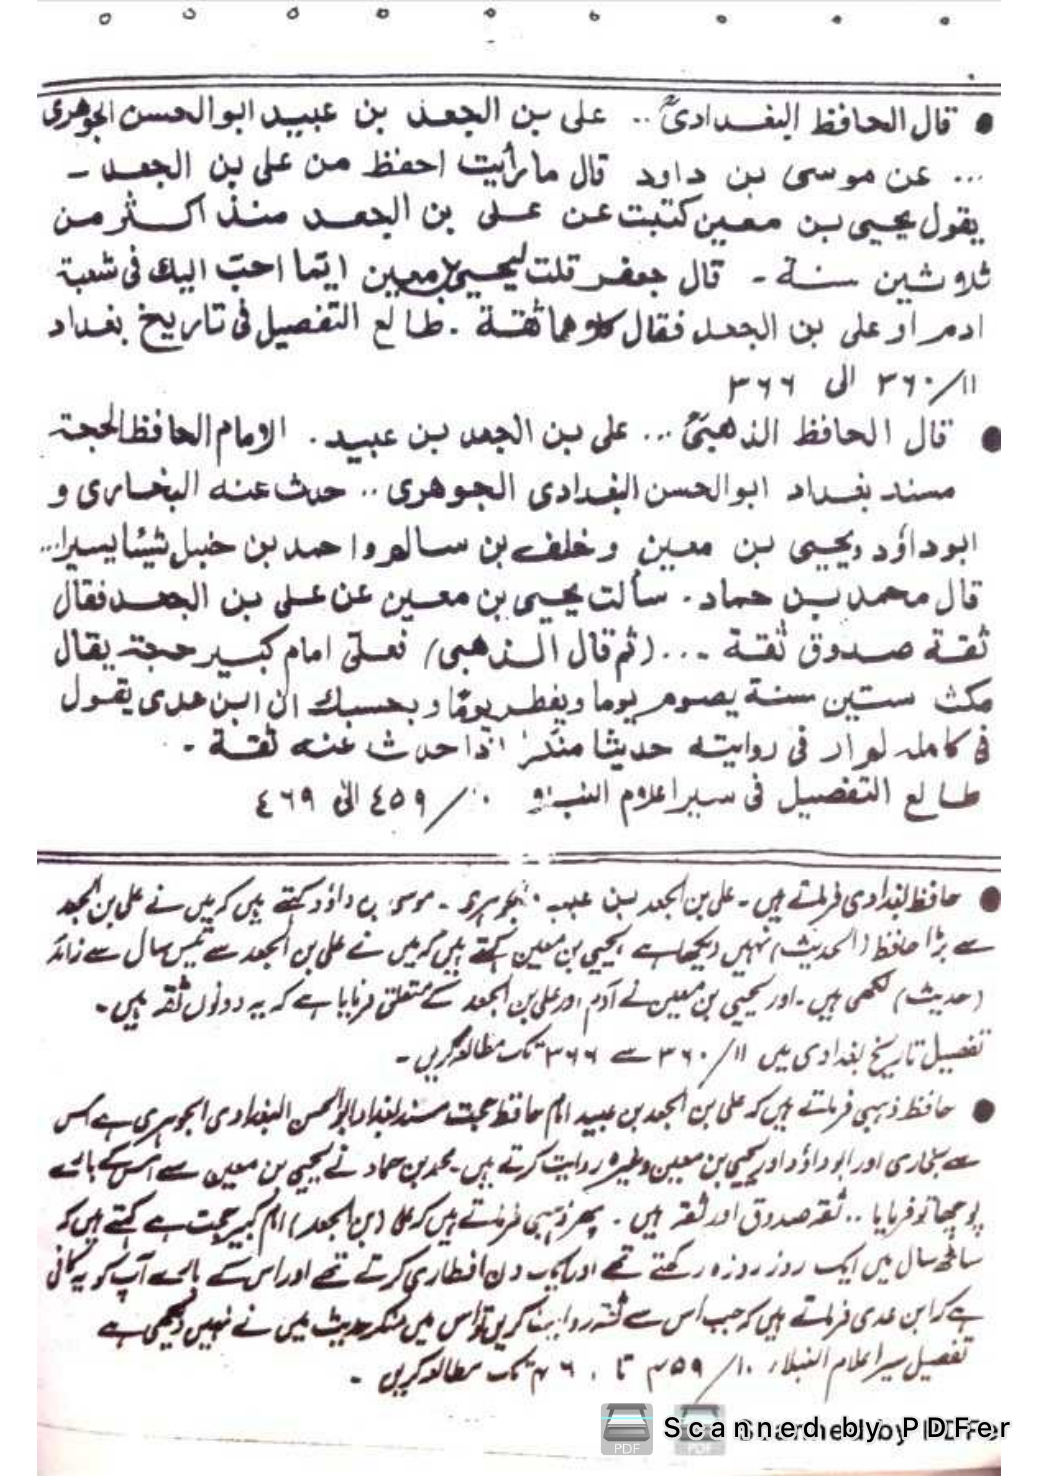 ● قال الحافظ البغدادیؒ .. علی بن الجعد بن عبید ابوالحسن الجوھری
... عن موسی بن داود قال مارأیت احفظ من علی بن الجعد ـ
یقول یحیی بن معین کتبت عن علی بن الجعد منذ اکثر من
ثلاثین سنة ـ قال جعفر قلت لیحیی بن معین ایما احب الیك فی شعبة
ادم او علی بن الجعد فقال کلاهما ثقة ـ طالع التفصیل فی تاریخ بغداد
۱۱/۳٦۰ الی ۳٦٦
● قال الحافظ الذهبیؒ ... علی بن الجعد بن عبید ـ الامام الحافظ الحجة
مسند بغداد ابوالحسن البغدادی الجوھری .. حدث عنه البخاری و
ابوداؤد ویحیی بن معین وخلف بن سالم واحمد بن حنبل شیئا یسیرا...
قال محمد بن حماد ـ سألت یحیی بن معین عن علی بن الجعد فقال
ثقة صدوق ثقة ـ ... (ثم قال الذهبی) فعلی امام کبیر حجة یقال
مکث ستین سنة یصوم یوما ویفطر یوما وبحسبك ان ابن عدی یقول
فی کامله لم ار فی روایته حدیثا منکرا اذا حدث عنه ثقة ـ
طالع التفصیل فی سیر اعلام ٤٥۹ الی ٤٦۹
● حافظ بغدادی فرماتے ہیں ـ علی بن الجعد بن الجوہری ـ موسیٰ بن داؤد کہتے ہیں کہ میں نے علی بن الجعد
سے بڑا حافظ (الحدیث) نہیں دیکھا ہے یحییٰ بن معین کہتے ہیں کہ میں نے علی بن الجعد سے تیس سال سے زائد
(حدیث) لکھی ہیں ـ اور یحییٰ بن معین نے آدم اور علی بن الجعد کے متعلق فرمایا ہے کہ یہ دونوں ثقہ ہیں ـ
تفصیل تاریخ بغدادی میں ۱۱/۳٦۰ سے ۳٦٦ تک مطالعہ کریں ـ
● حافظ ذہبی فرماتے ہیں کہ علی بن الجعد بن عبید امام حافظ حجت مسند بغداد ابوالحسن البغدادی الجوہری ہے اس
سے بخاری اور ابوداؤد اور یحییٰ بن معین وغیرہ روایت کرتے ہیں ـ محمد بن حماد نے یحییٰ بن معین سے اس کے بارے
پوچھا تو فرمایا .. ثقہ صدوق اور ثقہ ہیں ـ پھر ذہبی فرماتے ہیں کہ علی (بن الجعد) امام کبیر حجت ہے کہتے ہیں کہ
ساٹھ سال میں ایک روز روزہ رکھتے تھے اور ایک دن افطاری کرتے تھے اور اس کے بارے آپ کو یہ کافی
ہے کہ ابن عدی فرماتے ہیں کہ جب اس سے ثقہ روایت کریں تو اس میں منکر حدیث میں نے نہیں دیکھی ہے
تفصیل سیر اعلام النبلاء ۱۰/٤٥۹ تا تک مطالعہ کریں ـ
Scanned by PDFer
Scanned by PDFer